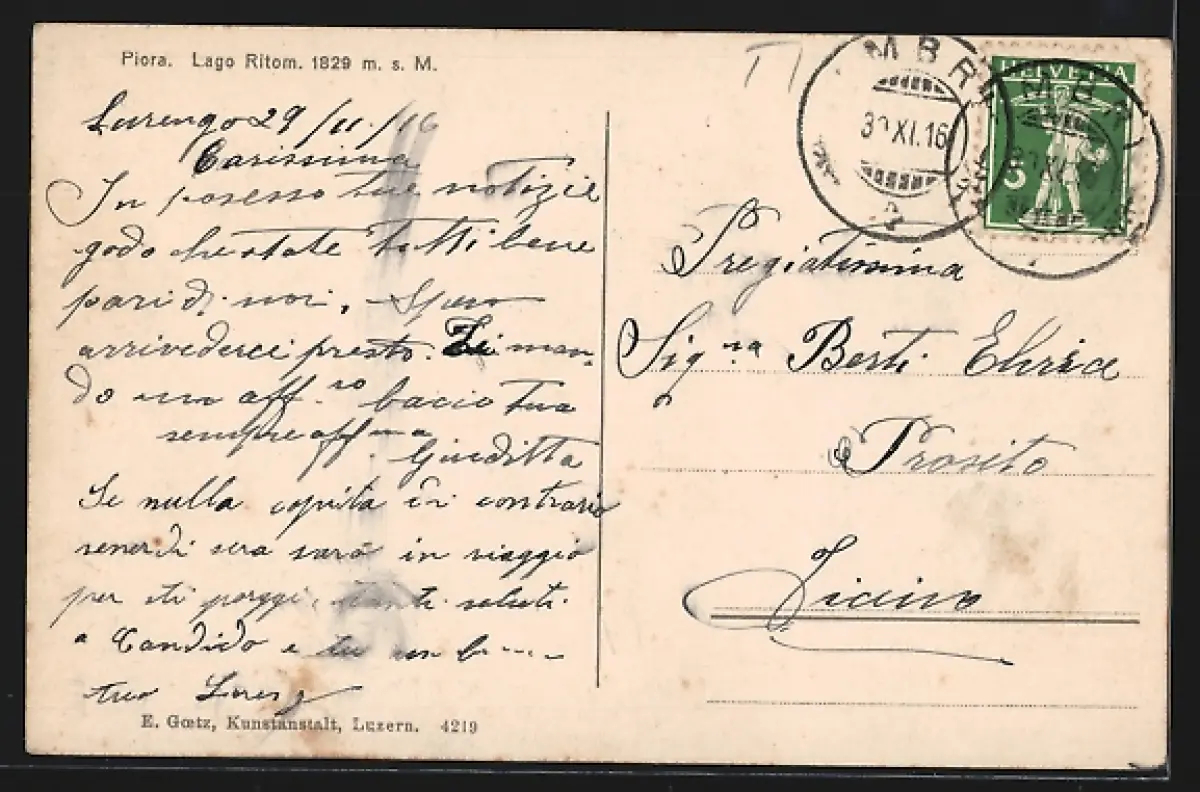 Piora. Lago Ritom. 1829 m. s. M.
Lurengo 29/11/16
Carissima
In possesso tue notizie
godo che state tutti bene
pari di noi. Spero
arrivederci presto. Ti man-
do un aff.ro bacio tua
sempre aff.ma
Giuditta
Se nulla capita in contrario
venerdì sera sarà in viaggio
per sti poggi, tanti saluti
a Candido e tu un b
tuo
E. Gœtz, Kunstanstalt, Luzern. 4219
MBRÌ
30 XI. 16
HELVETIA
5
Pregiatissima
Sig.ra Berti
Prosito
Ticino